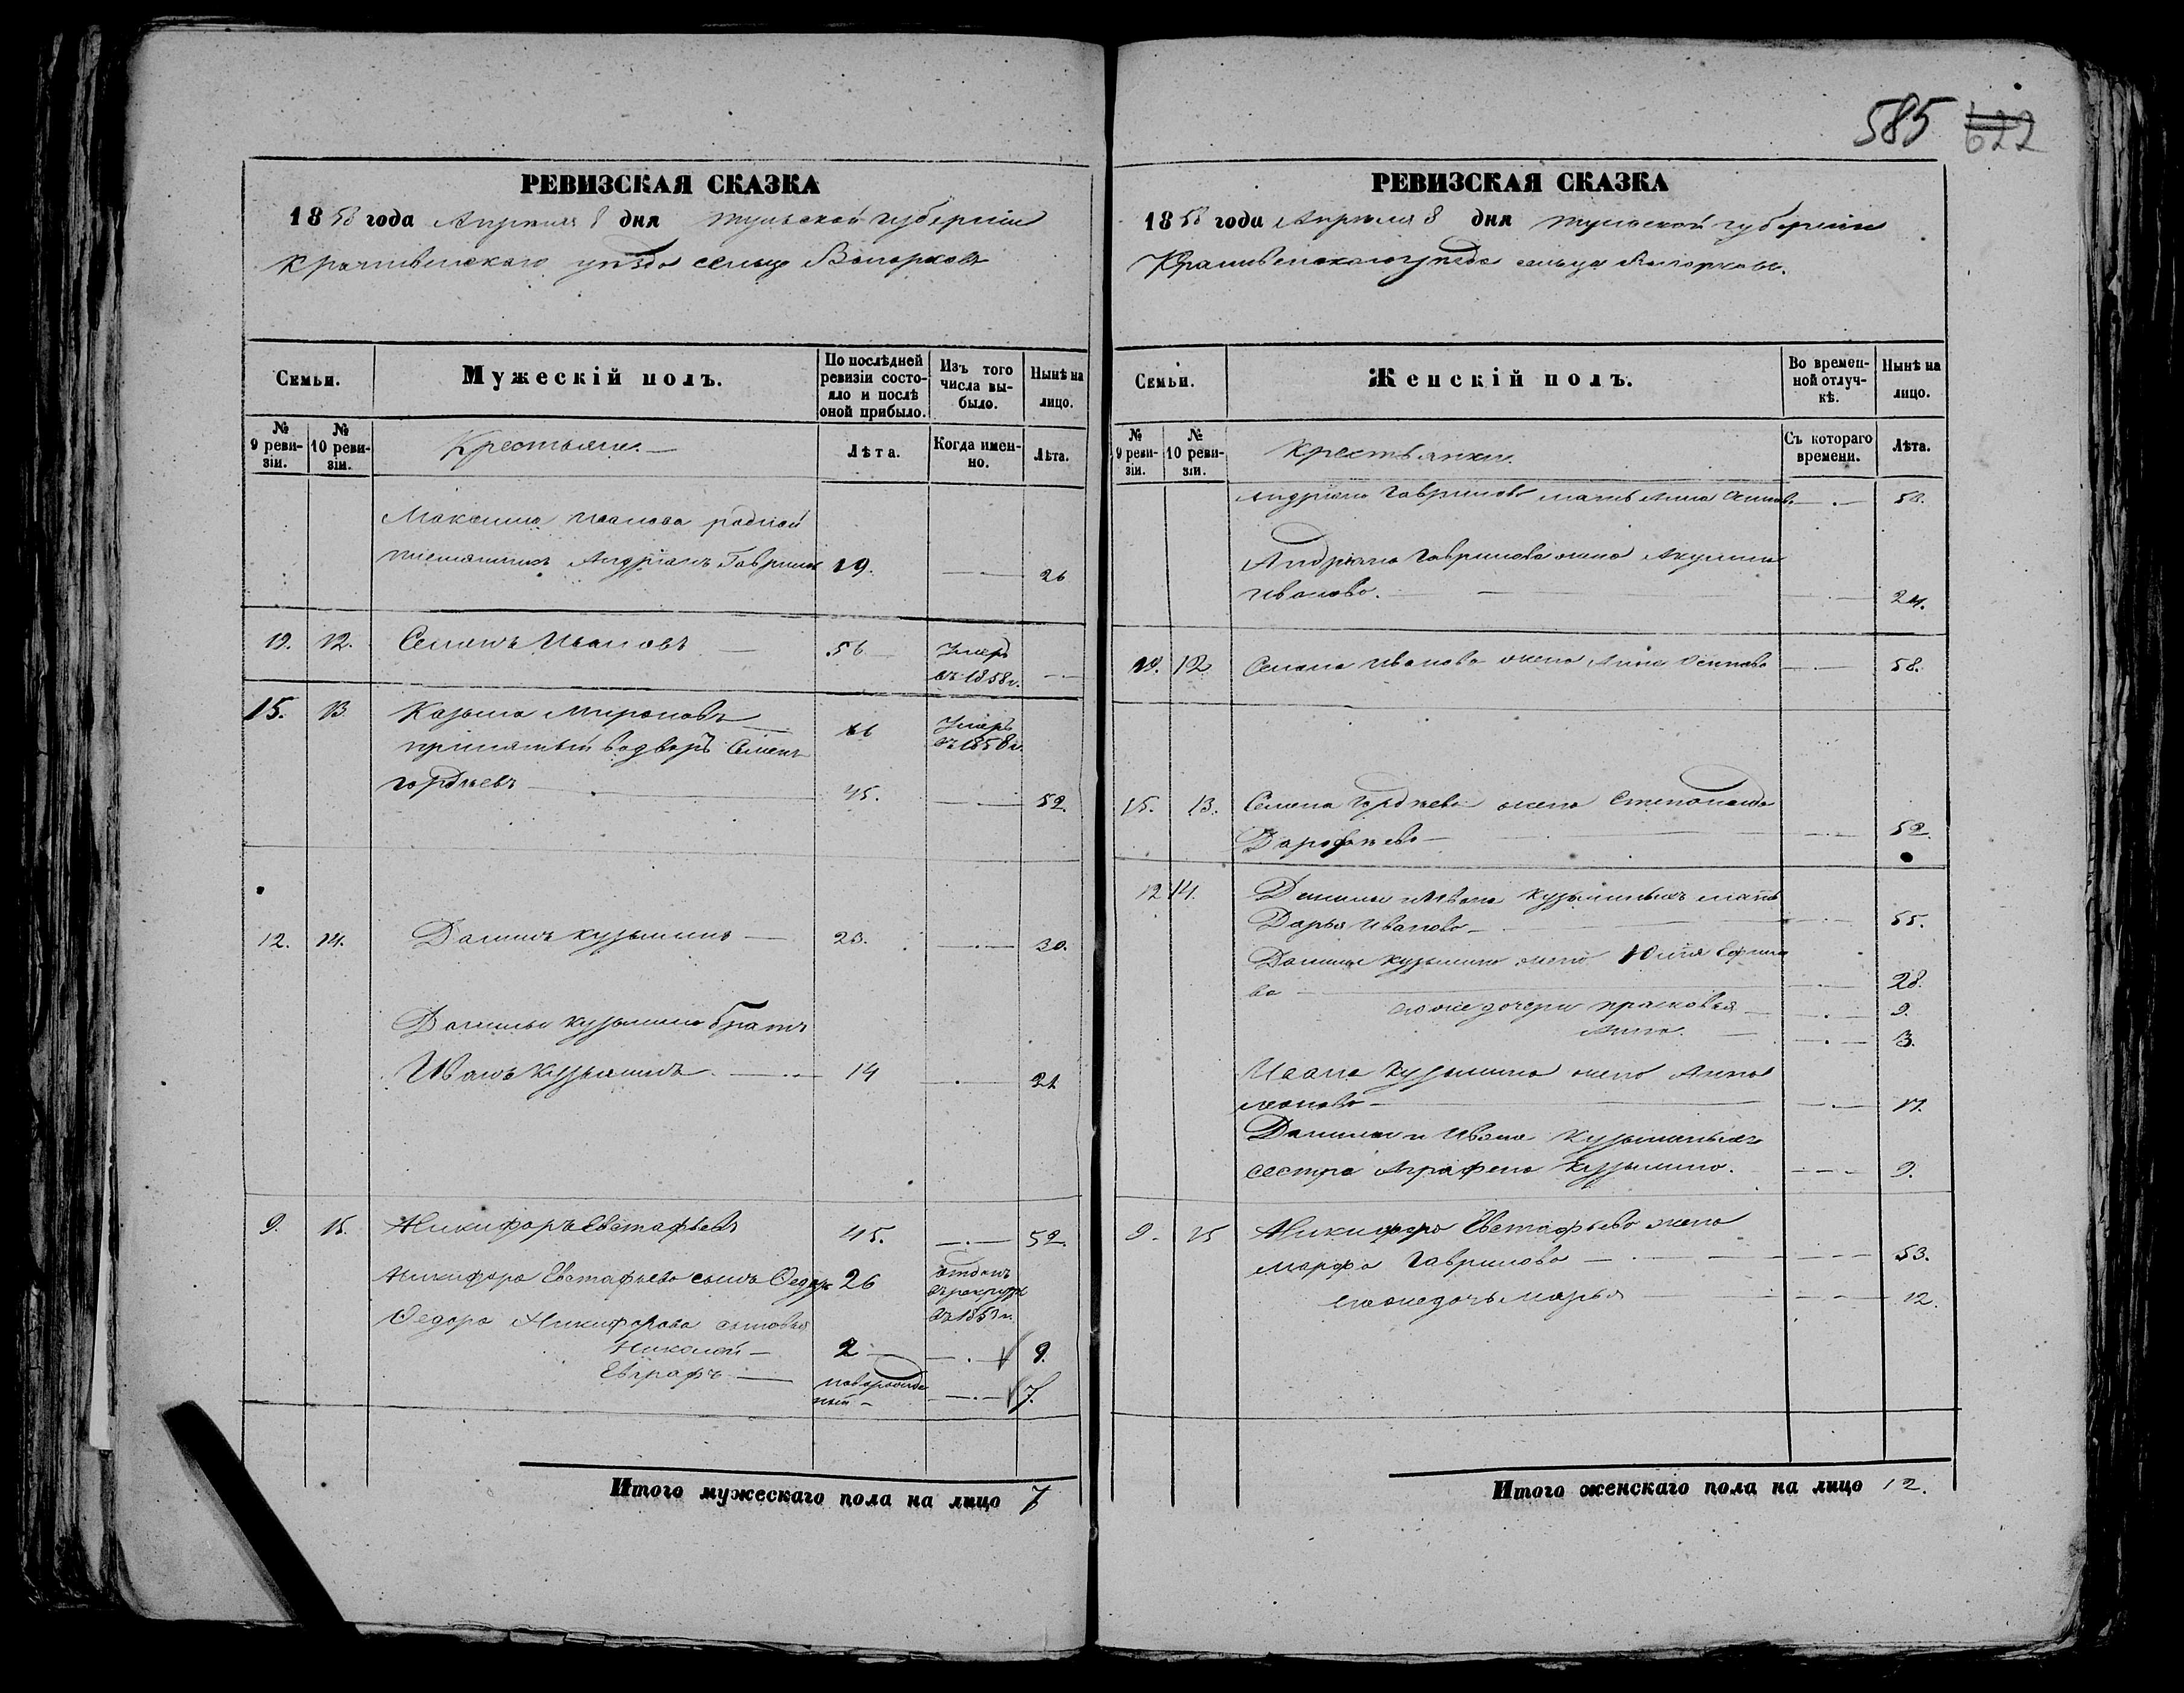 585 622
РЕВИЗСКАЯ СКАЗКА
1858 года Апреля 8 дня Тульской губернии
Крапивенского уѣзда сельца
Семьи.
Мужескій полъ.
По послѣдней ревизіи состояло и послѣ оной прибыло.
Изъ того числа выбыло.
Нынѣ на лицо.
№ 9 ревизіи.
№ 10 ревизіи.
Крестьяне.
Лѣта.
Когда именно.
Лѣта.
Максима Иванова родной
племянникъ Андріанъ Гавриловъ 19. 26
12. Семенъ Ивановъ 56 Умеръ
въ 1858 г.
15. 13 Козьма Мироновъ 66 Умеръ
въ 1858 г.
принятый во дворъ Семенъ
Гордѣевъ 45. 52.
12. 14. Данила Кузьминъ 23. 30.
Данилы Кузьмина братъ
Иванъ Кузьминъ 14 21
9. 15. Никифоръ Евстафьевъ 45. 52.
Никифора Евстафьева сынъ Федоръ 26 отданъ
въ рекруты
Федора Никифорова сыновья
Николай 2 9.
Евграфъ новорожден
ный 7.
Итого мужескаго пола на лицо 7
РЕВИЗСКАЯ СКАЗКА
1858 года Апреля 8 дня Тульской губернии
Крапивенского уѣзда сельца
Семьи.
Женскій полъ.
Во временной отлучкѣ.
Нынѣ на лицо.
№ 9 ревизіи.
№ 10 ревизіи.
Крестьянки.
Съ котораго времени.
Лѣта.
Андріана Гаврилова мать Анна 58.
Андріана Гаврилова жена Акулина
Иванова. 24.
12 Семена Иванова жена Анна Осипова 58.
15. 13. Семена Гордѣева жена Степанида
Дарофѣева 52.
12 14. Данилы и Ивана Кузьминыхъ мать
Дарья Иванова 55.
Данилы Кузьмина жена Юлія Ефимо
ва 28.
его же дочери Прасковья 9.
Анна. 3.
Ивана Кузьмина жена Анна
Данилы и Ивана Кузьминыхъ
сестра Аграфена Кузьмина. 9.
9. 15 Никифора Евстафьева жена
Марфа Гаврилова 53.
его же дочь Марья 12.
Итого женскаго пола на лицо 12.